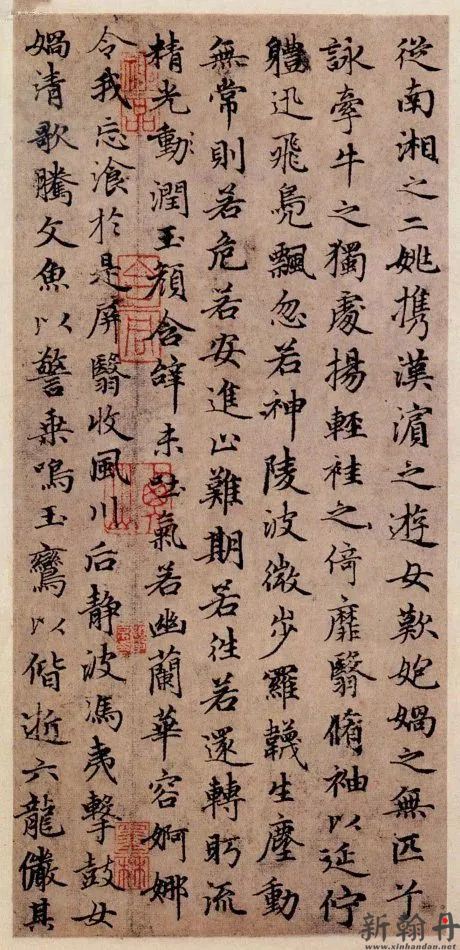 從南湘之二姚携漢濱之遊女歎匏媧之無匹兮
詠牽牛之獨處揚輕袿之倚靡翳脩袖以延佇
體迅飛鳧飄忽若神陵波微步羅韈生塵動
無常則若危若安進止難期若往若還轉眄流
精光動潤玉顏含辭未吐氣若幽蘭華容婀娜
令我忘飡於是屏翳收風川后静波馮夷擊鼓女
媧清歌騰文魚以警乗鳴玉鸞以偕逝六龍儼其
新翰丹
www.xinhandan.net